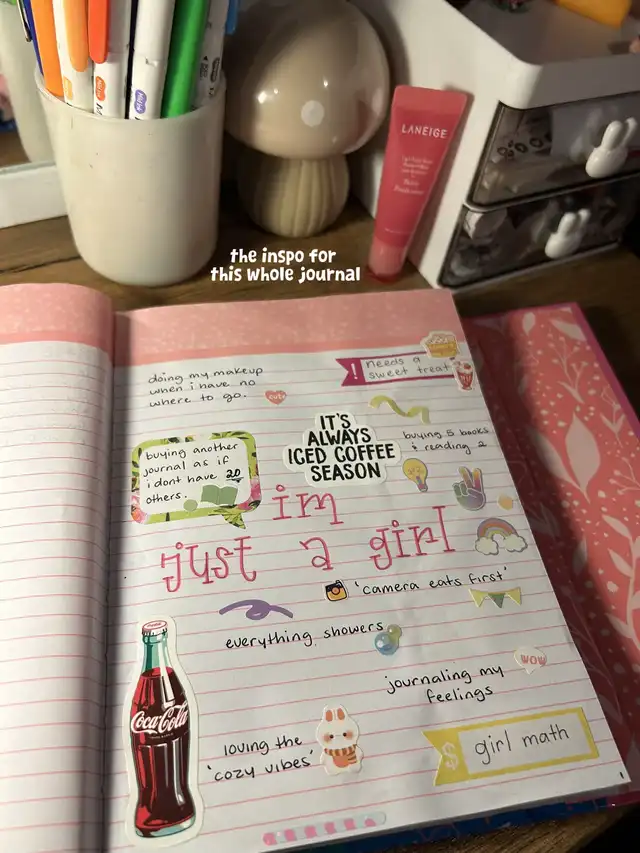 LANEIGE
the inspo for
this whole journal
doing my makeup
when i have no
where to go.
cute
! needs a
sweet treat
buying another
journal as if
i dont have 20
others.
IT'S
ALWAYS
ICED COFFEE
SEASON
buying 5 books
& reading 2
im
just a girl
'camera eats first'
everything showers
journaling my
feelings
WOW
Coca-Cola
loving the
'cozy vibes'
$ girl math